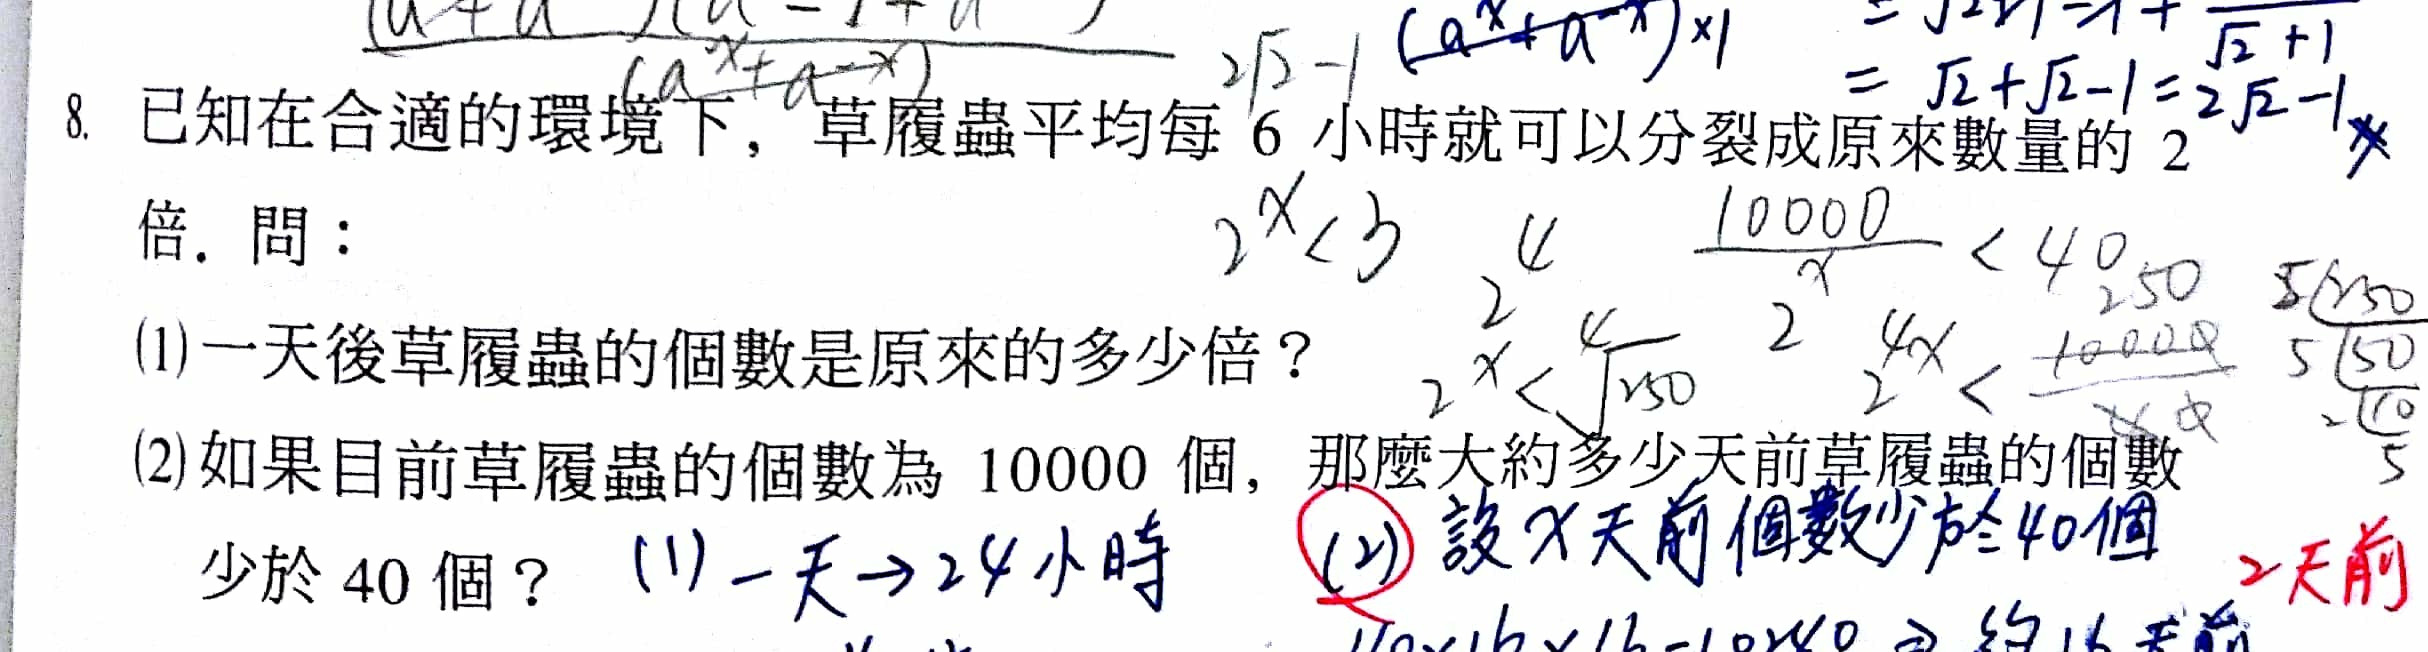 (aˣ+a⁻ˣ)
2√2-1
(aˣ+a⁻ˣ)×1
√2+1
= √2+√2-1=2√2-1
8. 已知在合適的環境下，草履蟲平均每 6 小時就可以分裂成原來數量的 2
倍．問：
2ˣ<3
2⁴
10000/x < 40
250
5 250
⑴一天後草履蟲的個數是原來的多少倍？
2ˣ<⁴√250
2
2⁴ˣ < 10000/40
5 50
2 10
5
⑵如果目前草履蟲的個數為 10000 個，那麼大約多少天前草履蟲的個數
少於 40 個？
(1) 一天→24小時
(2) 設x天前個數少於40個
2天前
40×16×16=10240 ⇒ 約16天前